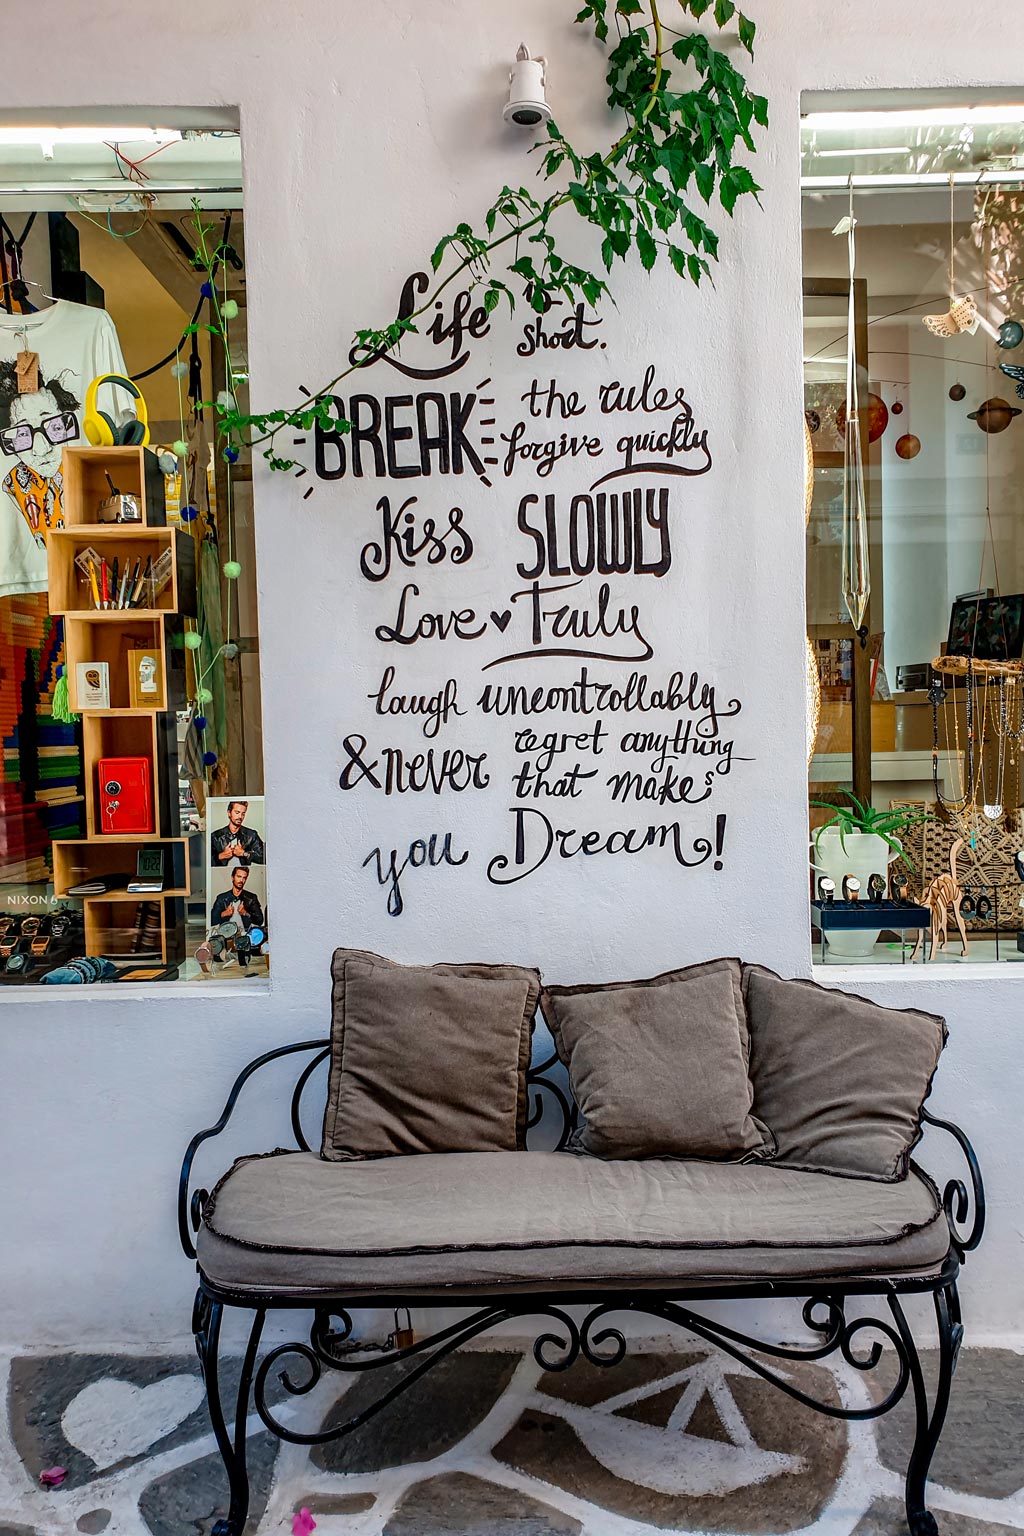 Life
short.
BREAK the rules
forgive quickly
Kiss SLOWLY
Love ♥ Truly
laugh uncontrollably
& never regret anything
that makes
you Dream!
NIXON